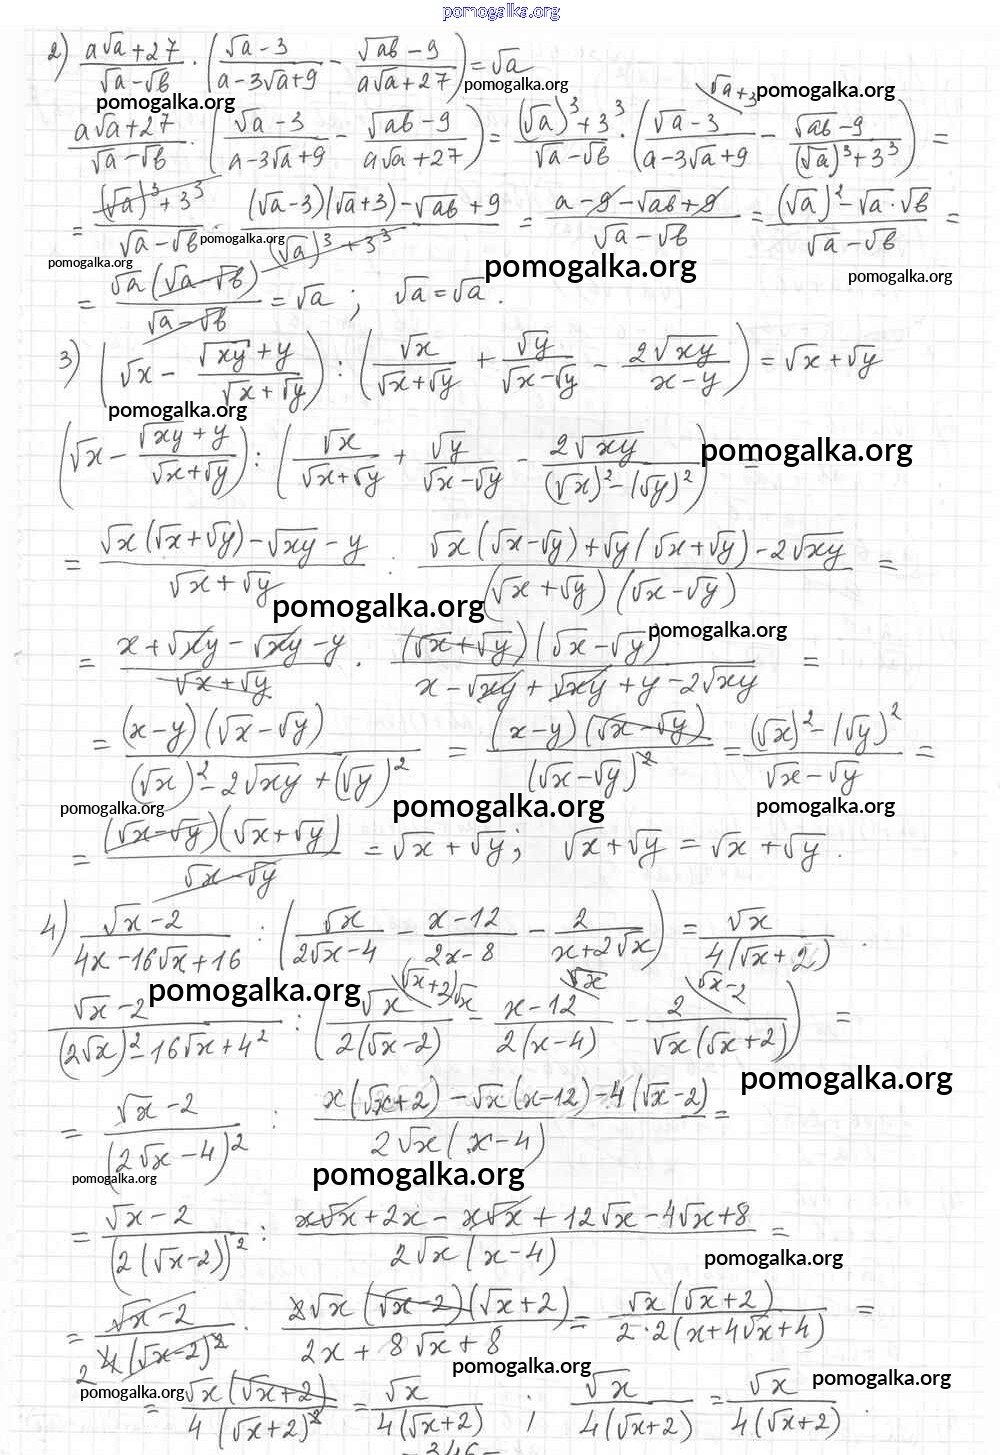 pomogalka.org
2) (a√a+27)/(√a-√b) · ((√a-3)/(a-3√a+9) - (√ab-9)/(a√a+27)) = √a
pomogalka.org
pomogalka.org √a+3 pomogalka.org
(a√a+27)/(√a-√b) · ((√a-3)/(a-3√a+9) - (√ab-9)/(a√a+27)) = ((√a)³+3³)/(√a-√b) · ((√a-3)/(a-3√a+9) - (√ab-9)/((√a)³+3³)) =
= ((√a)³+3³)/(√a-√b) · ((√a-3)(√a+3)-√ab+9)/((√a)³+3³) = (a-9-√ab+9)/(√a-√b) = ((√a)²-√a·√b)/(√a-√b) =
pomogalka.org
pomogalka.org pomogalka.org pomogalka.org
= (√a(√a-√b))/(√a-√b) = √a ; √a=√a.
3) (√x - (√xy+y)/(√x+√y)) : (√x/(√x+√y) + √y/(√x-√y) - 2√xy/(x-y)) = √x+√y
pomogalka.org
(√x - (√xy+y)/(√x+√y)) : (√x/(√x+√y) + √y/(√x-√y) - 2√xy/((√x)²-(√y)²)) =
pomogalka.org
= (√x(√x+√y)-√xy-y)/(√x+√y) : (√x(√x-√y)+√y(√x+√y)-2√xy)/((√x+√y)(√x-√y)) =
pomogalka.org
pomogalka.org
= (x+√xy-√xy-y)/(√x+√y) · ((√x+√y)(√x-√y))/(x-√xy+√xy+y-2√xy) =
= ((x-y)(√x-√y))/((√x)²-2√xy+(√y)²) = ((x-y)(√x-√y))/((√x-√y)²) = ((√x)²-(√y)²)/(√x-√y) =
pomogalka.org pomogalka.org pomogalka.org
= ((√x-√y)(√x+√y))/(√x-√y) = √x+√y; √x+√y = √x+√y.
4) (√x-2)/(4x-16√x+16) : (√x/(2√x-4) - (x-12)/(2x-8) - 2/(x+2√x)) = √x/(4(√x+2)).
pomogalka.org (√x+2)√x √x √x-2
(√x-2)/((2√x)²-16√x+4²) : (√x/(2(√x-2)) - (x-12)/(2(x-4)) - 2/(√x(√x+2))) =
pomogalka.org
= (√x-2)/((2√x-4)²) : (x(√x+2)-√x(x-12)-4(√x-2))/(2√x(x-4)) =
pomogalka.org pomogalka.org
= (√x-2)/((2(√x-2))²) : (x√x+2x-x√x+12√x-4√x+8)/(2√x(x-4)) =
pomogalka.org
= (√x-2)/(4(√x-2)²) · (2√x(√x-2)(√x+2))/(2x+8√x+8) = (√x(√x+2))/(2·2(x+4√x+4)) =
2
pomogalka.org
pomogalka.org pomogalka.org
= (√x(√x+2))/(4(√x+2)²) = √x/(4(√x+2)) ; √x/(4(√x+2)) = √x/(4(√x+2)).
-346-